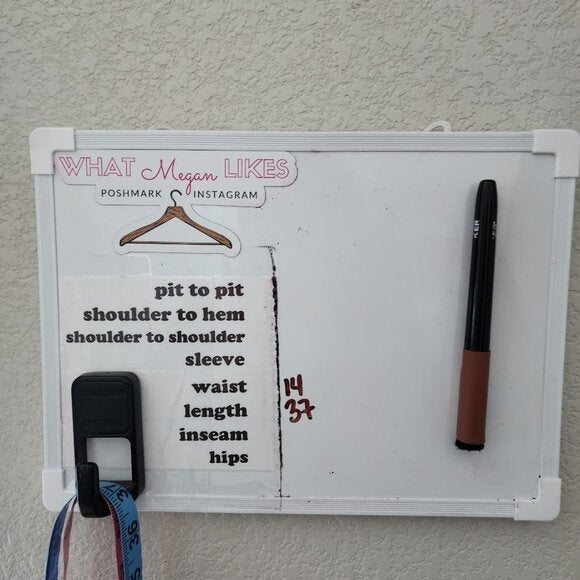 WHAT Megan LIKES
POSHMARK INSTAGRAM
pit to pit
shoulder to hem
shoulder to shoulder
sleeve
waist 14
length 37
inseam
hips
37
36